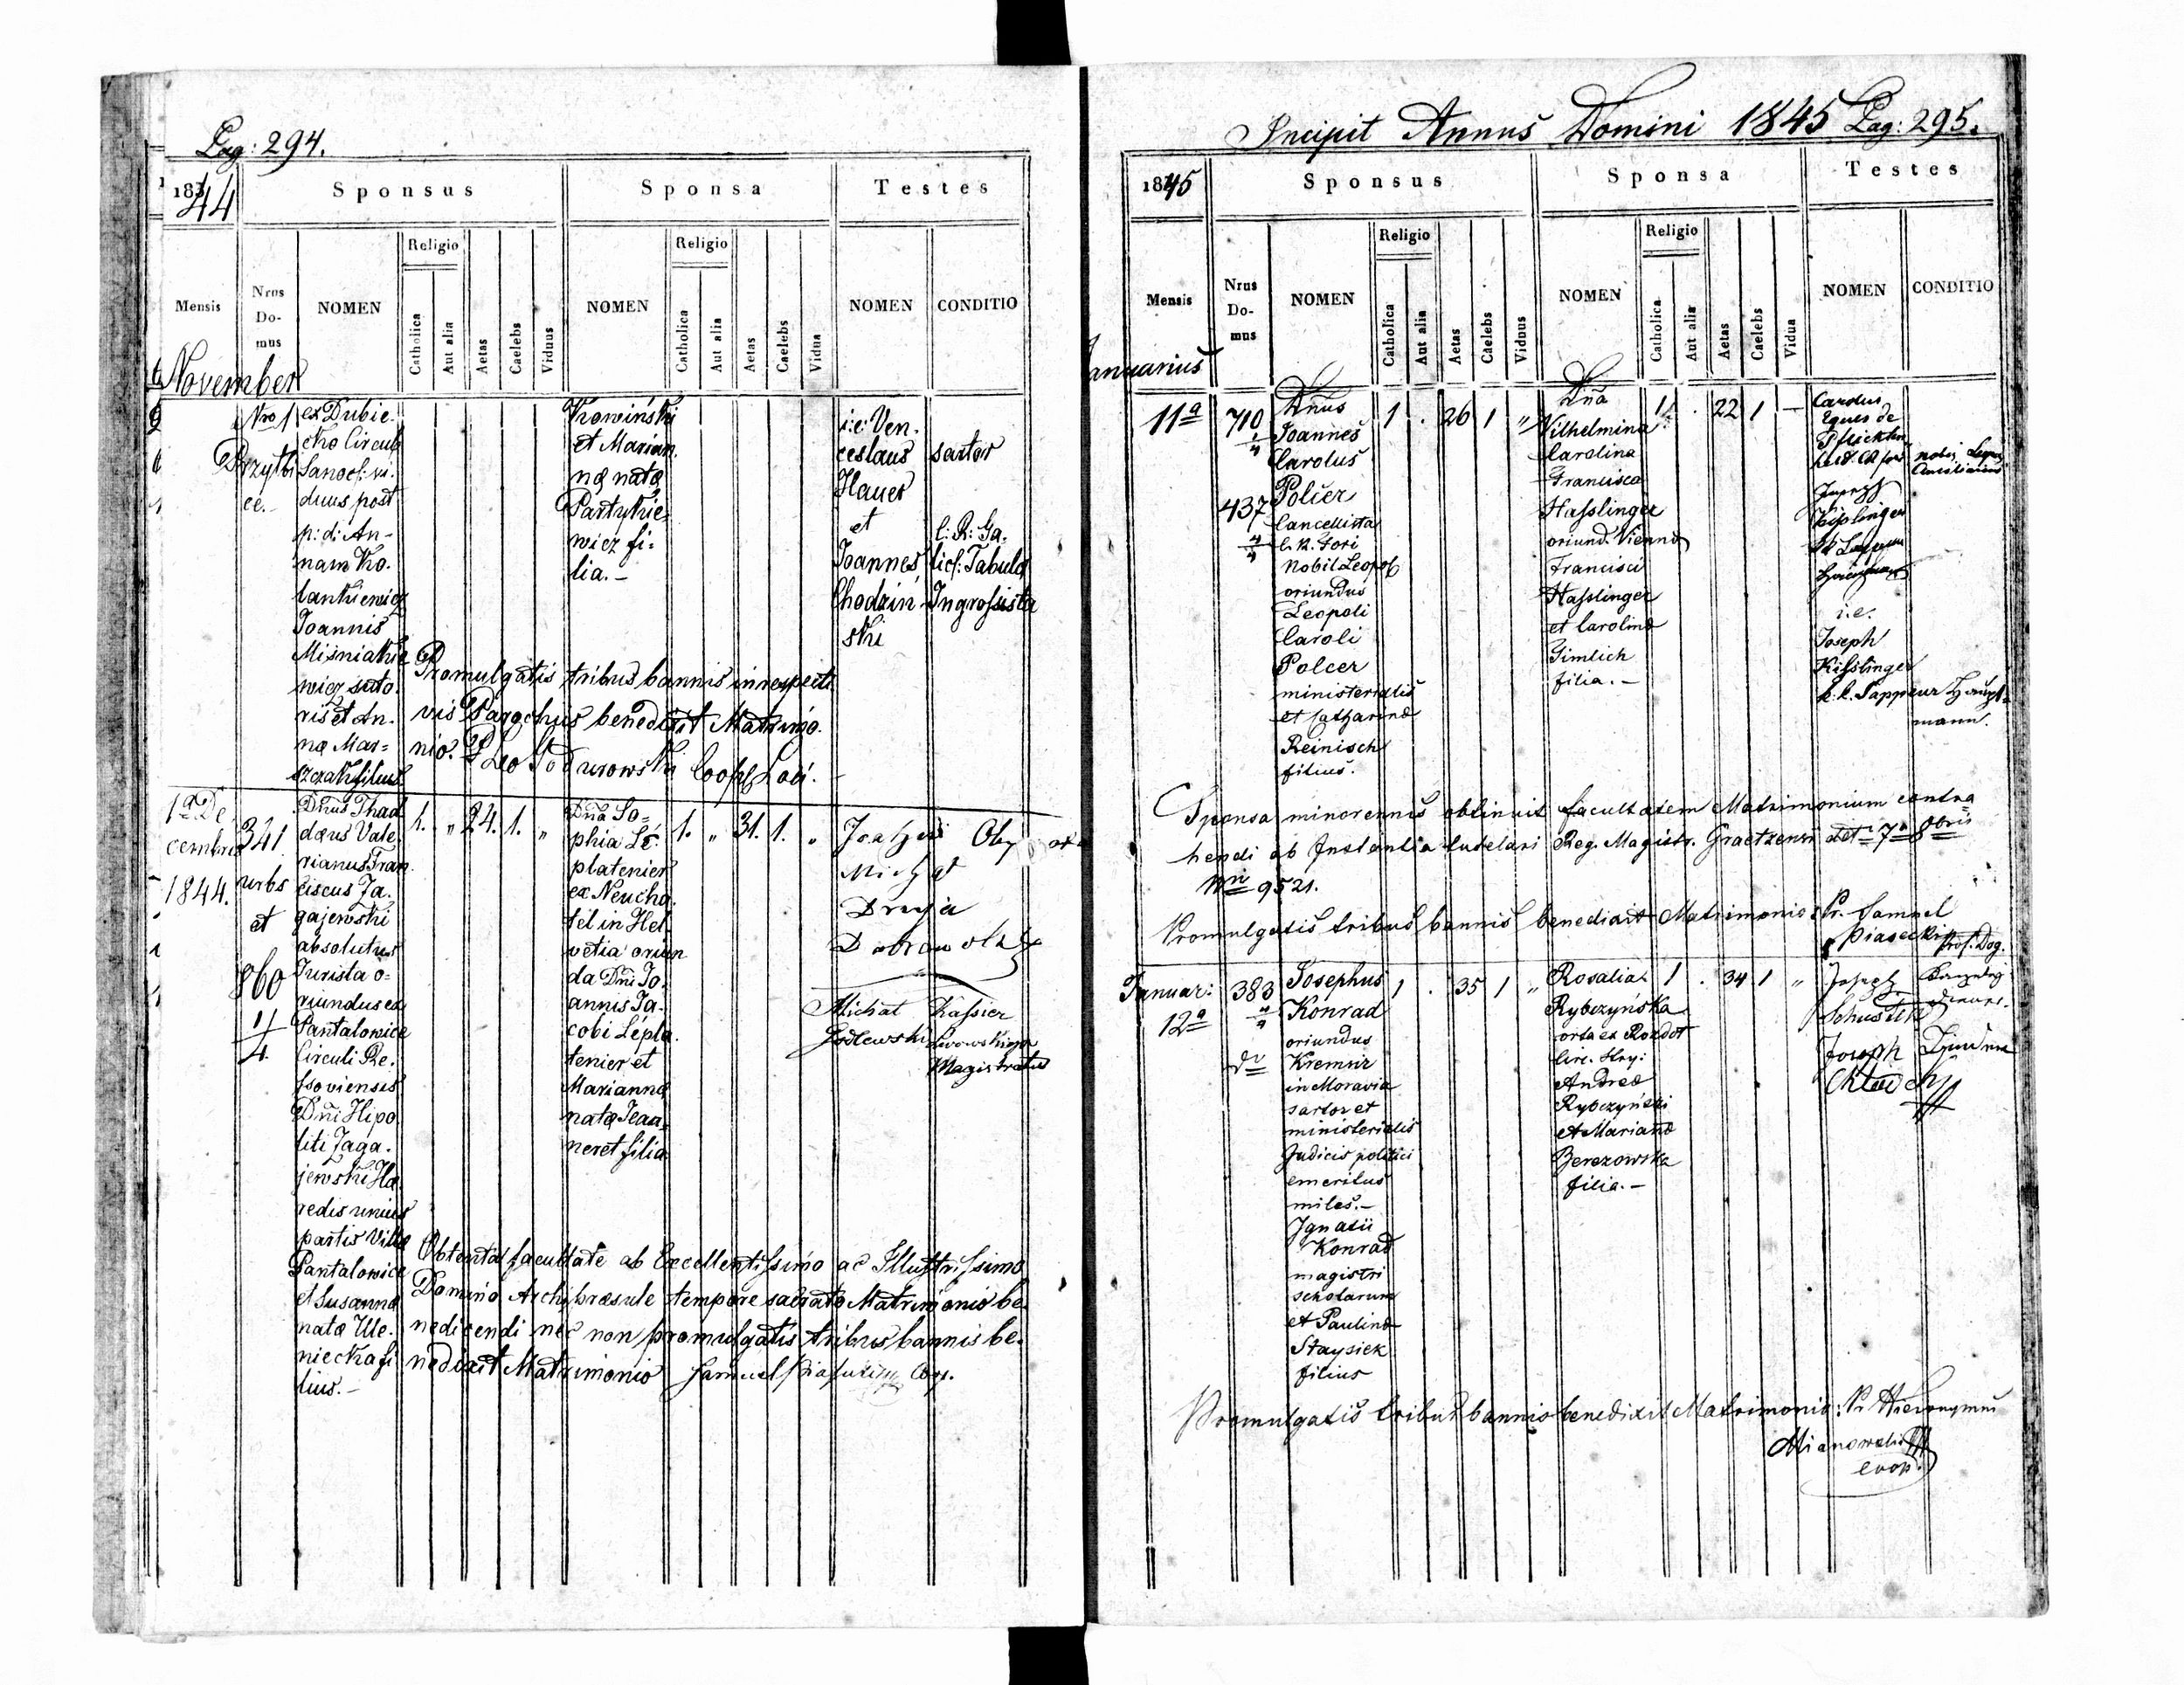 Pag: 294.
1844
Sponsus
Sponsa
Testes
Mensis
Nrus Do-mus
NOMEN
Religio
Catholica
Aut alia
Aetas
Caelebs
Viduus
NOMEN
Religio
Catholica
Aut alia
Aetas
Caelebs
Vidua
NOMEN
CONDITIO
November
Nro 1
ce.-
ex Dubie
cko Circuli
Sanoc: vi.
duus post
p: d: An-
nam Ko-
lankiewicz
Joannis
Miśniakie
wicz suto
ris et An-
næ Mar=
szczak filius
Krowiński
et Marian
næ natæ
Partykie
wicz fi-
lia.-
i:e: Ven.
ceslaus
Hauer
et
Joannes
Chodzin
ski
sartor
C: R: Ga-
lic: Tabulæ
Ingrossista
Promulgatis tribus bannis in respecti
vis Parochus benedixit Matrimo
nio.
1a De
cembris
1844.
341
urbs
et
860
4/4
Dnus Thad
dæus Vale
rianus Fran
ciscus Za-
gajewski
absolutus
Jurista o-
riundus ex
Pantalowice
Circuli Re-
ssoviensis
Dni Hipo
liti Zaga-
jewski Hæ
redis unius
partis Villæ
Pantalowice
et Susannæ
natæ Ule-
niecka fi
lius.-
1.
"
24.
1.
"
Dna So-
phia Le-
platenier
ex Neucha
tel in Hel
vetia oriun
da Dni Jo
annis Ja-
cobi Lépla
tenier et
Mariannæ
natæ Jeaa
neret filia
1.
"
31.
1.
"
Michał
Kassier
Lwowskiego
Magistratu
Obtenta facultate ab Excellentissimo ac Illustrissimo
Domino Archipræsule tempore sacrato Matrimonio be-
nedicendi nec non promulgatis tribus bannis be-
nedixit Matrimonio Samuel Piasecki Coop.
Incipit Annus Domini 1845 Pag: 295.
1845
Sponsus
Sponsa
Testes
Mensis
Nrus Do-mus
NOMEN
Religio
Catholica
Aut alia
Aetas
Caelebs
Viduus
NOMEN
Religio
Catholica
Aut alia
Aetas
Caelebs
Vidua
NOMEN
CONDITIO
Januarius
11a
710
4/4
437
4/4
Dnus
Joannes
Carolus
Polcer
Cancellista
C. R. Fori
Nobil Leopol
oriundus
Leopoli
Caroli
Polcer
ministerialis
et Catharinæ
Reinisch
filius.
1
.
26
1
"
Dna
Wilhelmina
Carolina
Francisca
Hasslinger
oriund. Viennæ
Francisci
Hasslinger
et Carolinæ
Gimlich
filia.-
1.
.
22
1
-
Carolus
Eques de
i.e.
Joseph
Kisslinger
k.k. Sappeur Haupt=
mann.
Sponsa minorennis obtinuit facultatem Matrimonium contra
hendi ab Instantia tutelari Reg. Magistr. Graetzensi ddt 7a 8bris
Nri 9521.
Promulgatis tribus bannis benedixit Matrimonio: Pr. Samuel
Piasecki Prof. Dog.
Januar:
12a
383
4/4
Josephus
Konrad
oriundus
Kremsir
in Moravia
sartor et
ministerialis
Judicis politici
emeritus
miles.-
Ignatii
Konrad
magistri
scholarum
et Paulinæ
Staysiek
filius
1
.
35
1
"
Rosalia
Rybczyńska
orta ex Rozdoł
Circ. Stry:
Andreæ
Rybczyński
et Mariannæ
Berezowska
filia.-
1
.
34
1
"
Joseph
Joseph
Promulgatis tribus bannis benedixit Matrimonio: Pr Hieronymus
Mianowski
coop.